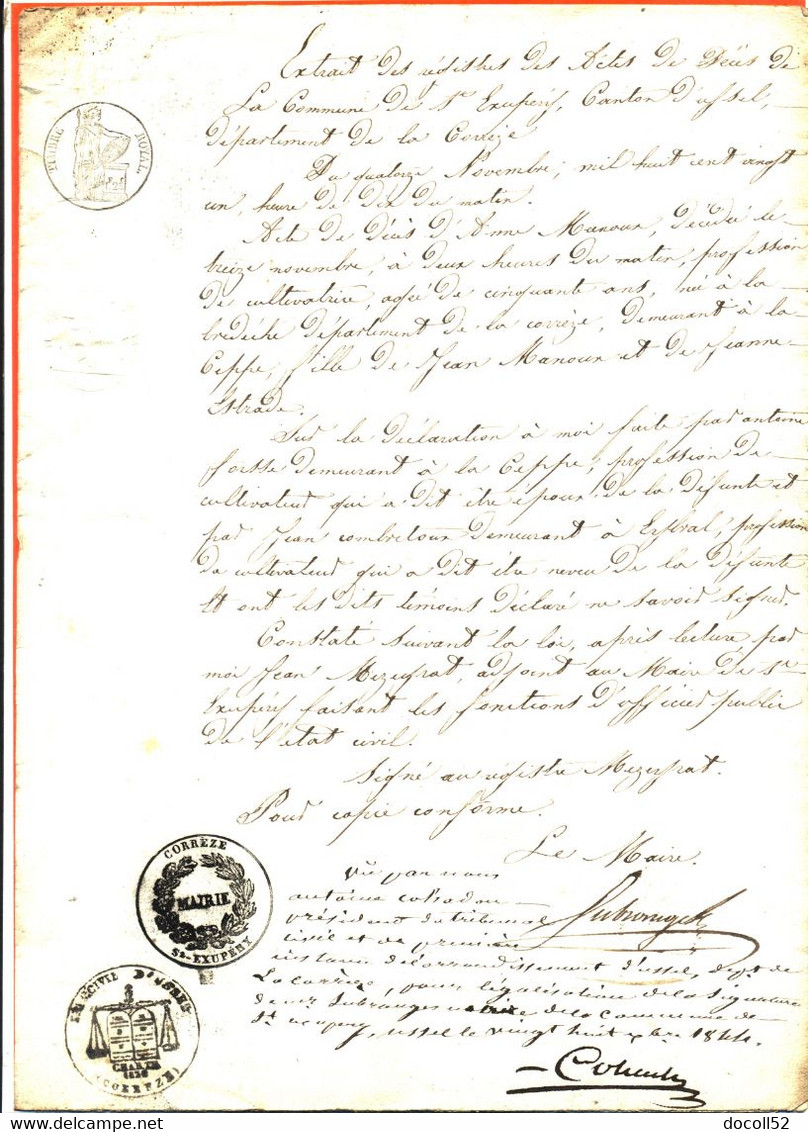 Extrait des régistres des Actes de Décès de
La Commune de St Exupéry, Canton d'ussel,
département de la Corrèze
TIMBRE ROYAL
Du quatorze Novembre, mil huit cent vingt
un, heure de dix du matin.
Acte de Décès d'Anne Manoux, décédée le
treize novembre, à deux heures du matin, profession
de cultivatrice, agée de cinquante ans, née à la
département de la corrèze, demeurant à la
Ceppe, fille de Jean Manoux et de Jeanne
Estrade.
Sur la déclaration à moi faite par antoine
demeurant à la Ceppe, profession de
cultivateur qui a dit être époux de la défunte et
par Jean combretoux demeurant à profession
de cultivateur qui a dit être neveu de la défunte
Et ont les dits témoins déclaré ne savoir signer.
Constaté suivant la loi, après lecture par
moi Jean Mezeyrat, adjoint au Maire de St
Exupéry faisant les fonctions d'officier public
de l'état civil.
Signé au régistre Mezeyrat.
Pour copie conforme.
Le Maire.
CORRÈZE
MAIRIE
St-EXUPÉRY
vu par nous
antoine
président du tribunal
civil et de première
instance de l'arrondissement d'ussel, dept de
La corrèze, pour légalisation de la signature
de mr maire de la commune de
St exupery, ussel le vingt huit 1844.
TRIB. CIVIL D'USSEL
CHARTE
1830
(CORRÈZE)
delcampe.net
docoll52